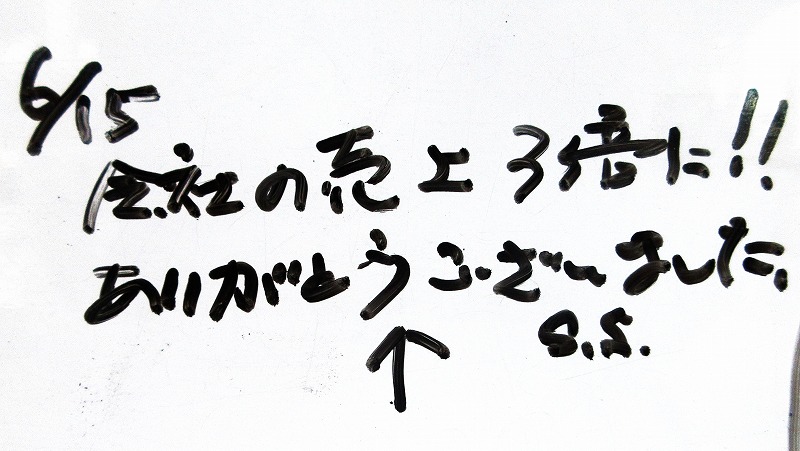 6/15
会社の売上3倍に!!
ありがとうございました。
S.S.
↑